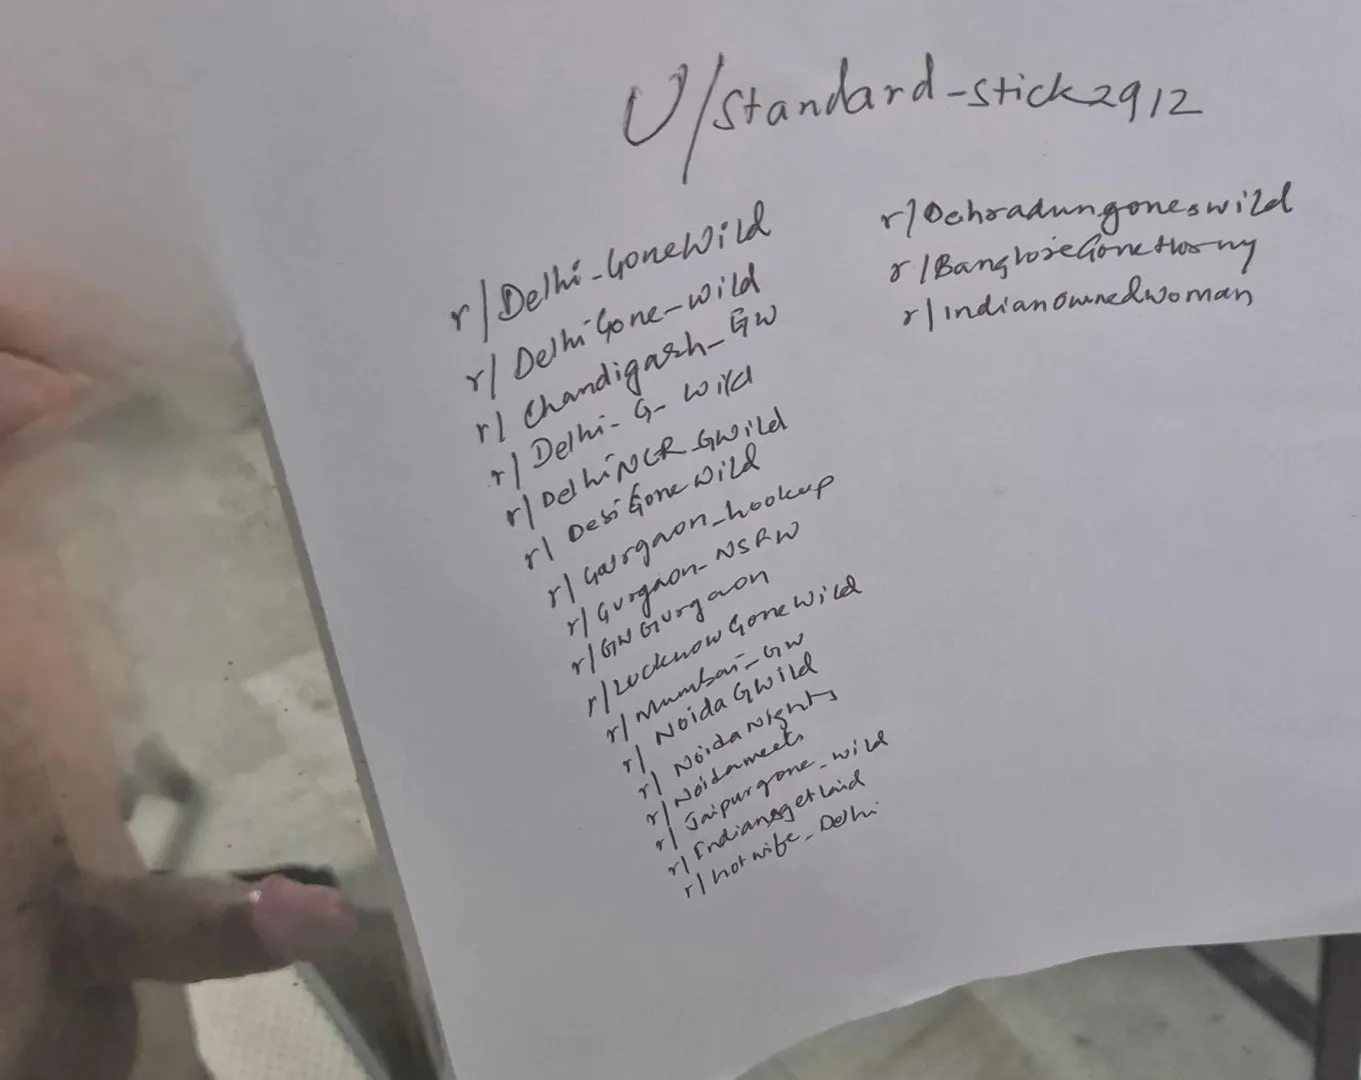 U/Standard-stick2912
r/Delhi_GoneWild
r/DelhiGone_wild
r/Chandigarh_GW
r/Delhi_G_Wild
r/DelhiNCR_GWild
r/DesiGoneWild
r/Gurgaon_hookup
r/Gurgaon_NSFW
r/GWGurgaon
r/LucknowGoneWild
r/Mumbai_GW
r/NoidaGWild
r/NoidaNights
r/Noidameets
r/Jaipurgone_wild
r/Indiansgetlaid
r/hotwife_Delhi
r/Dehradungoneswild
r/BangloreGoneHorny
r/indianownedwoman